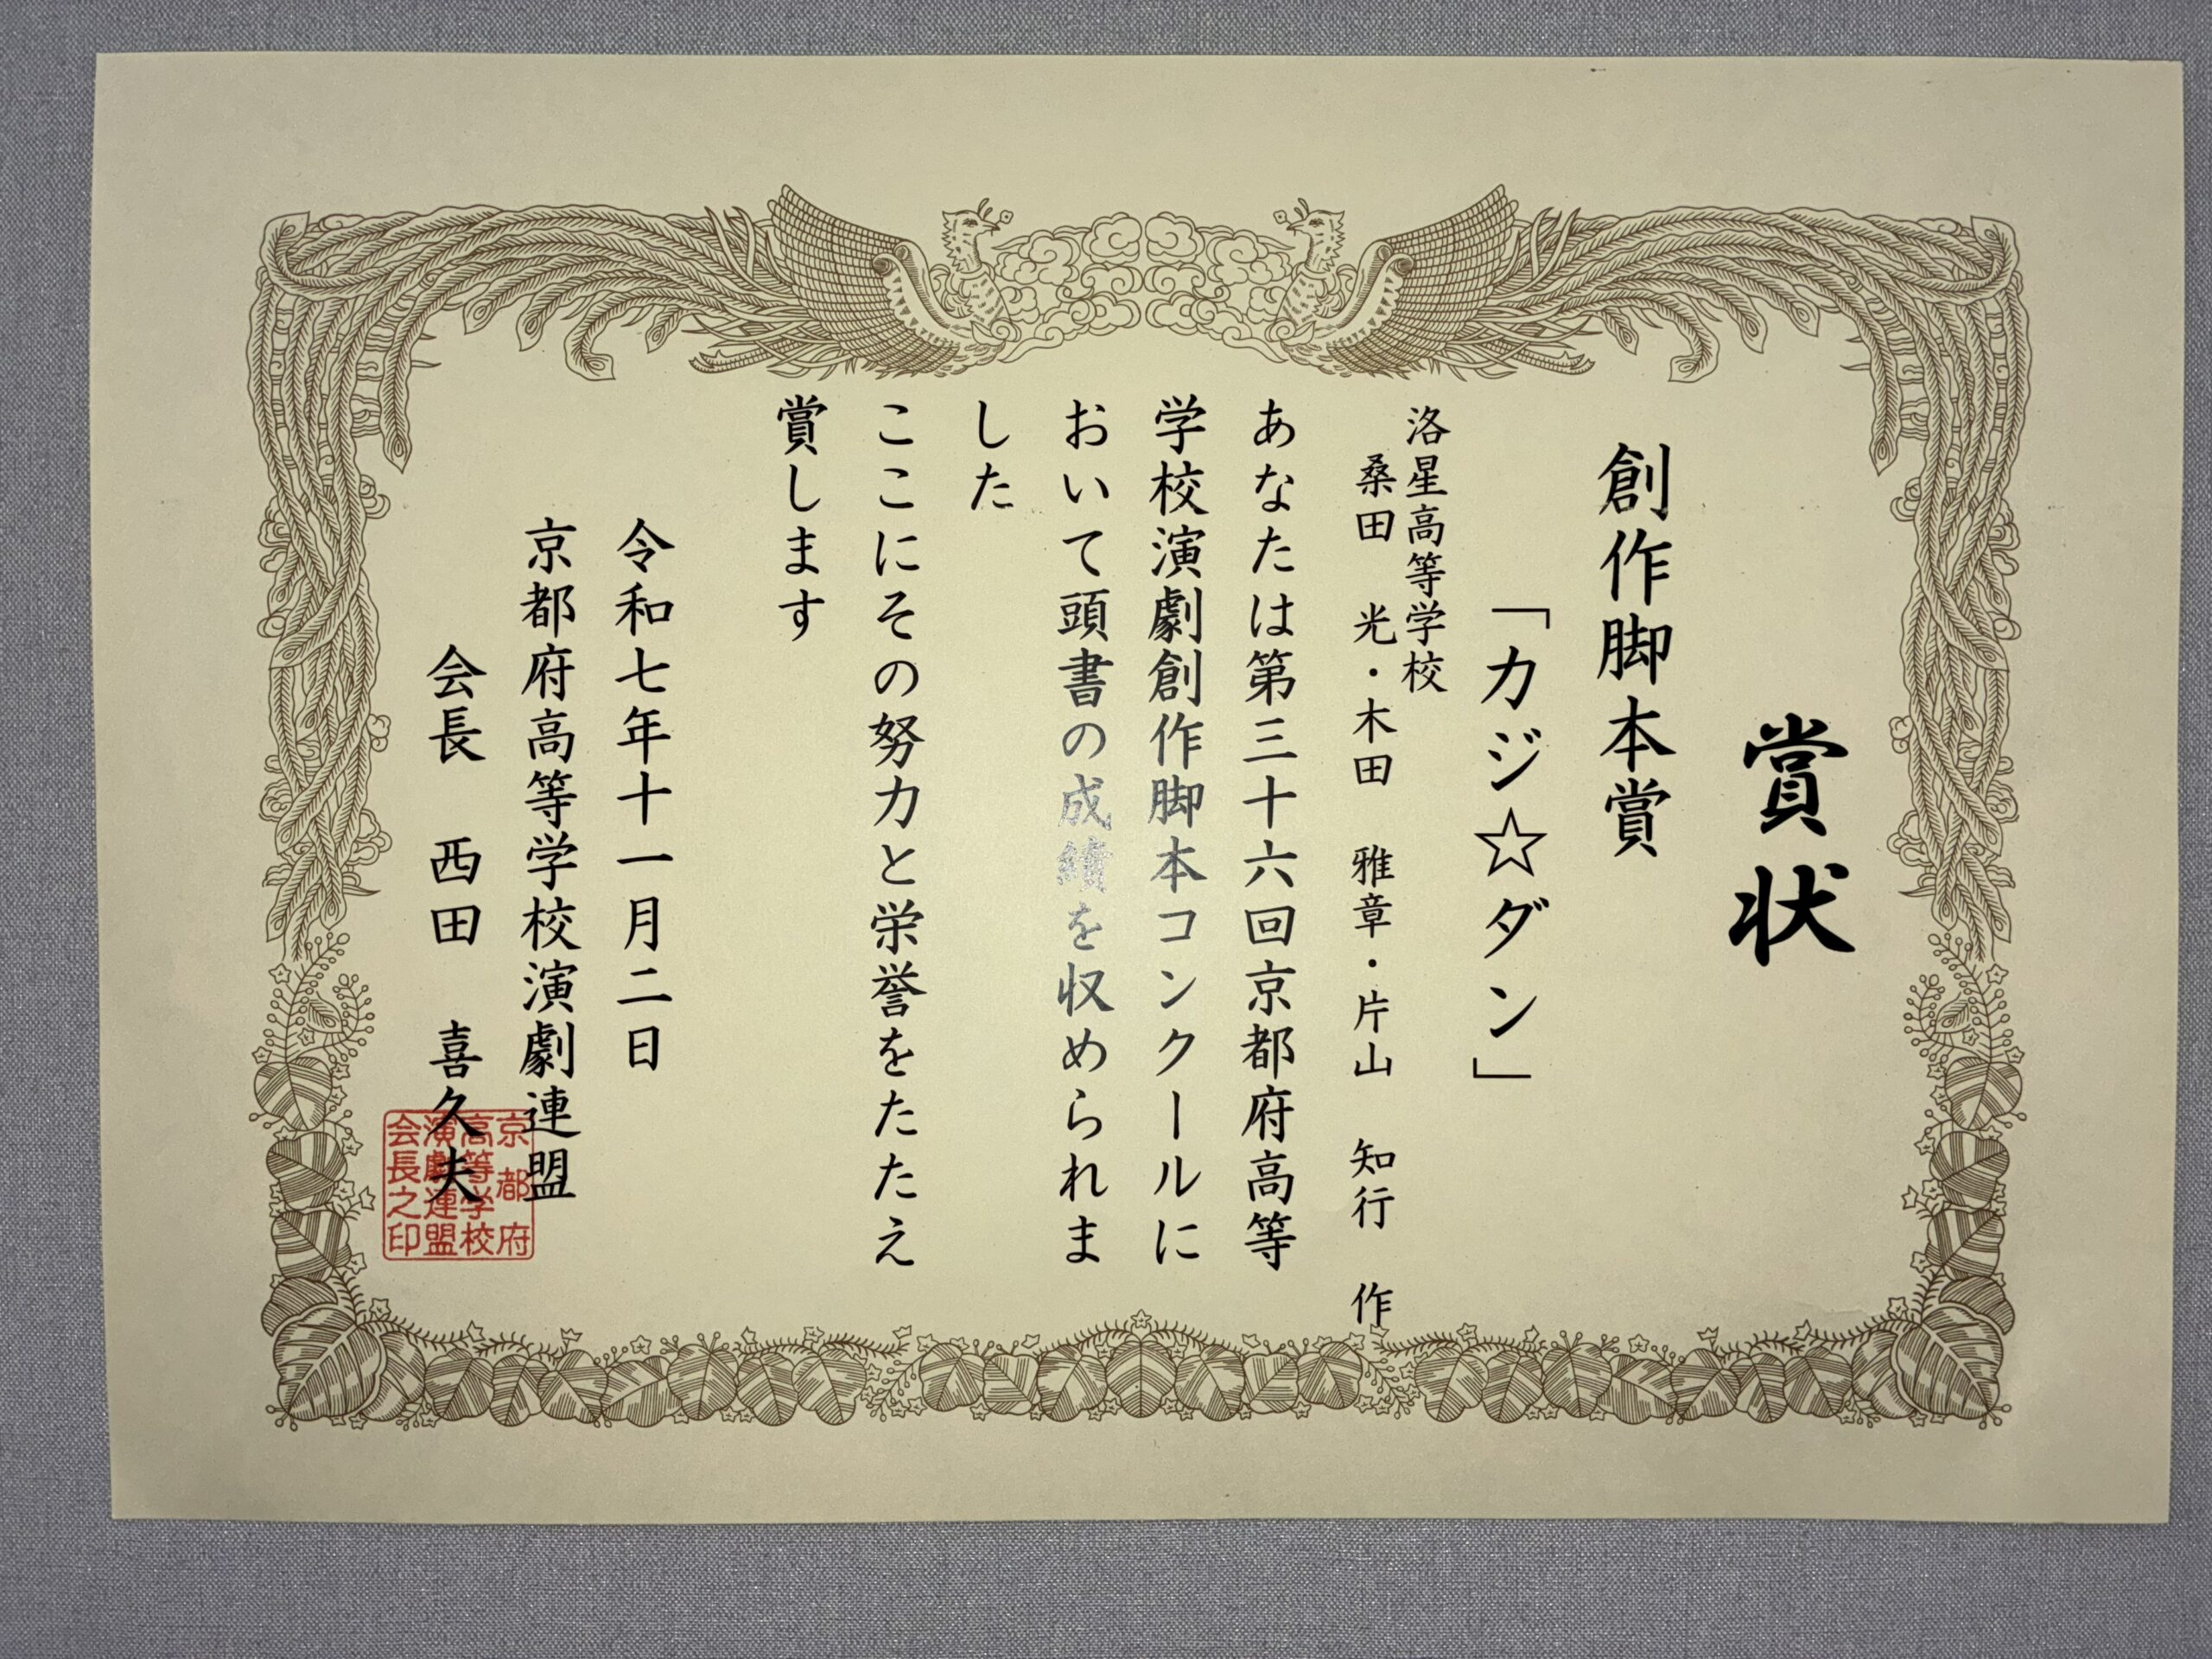 賞状
創作脚本賞
「カジ☆ダン」
洛星高等学校
桑田　光・木田　雅章・片山　知行　作
あなたは第三十六回京都府高等
学校演劇創作脚本コンクールに
おいて頭書の成績を収められま
した
ここにその努力と栄誉をたたえ
賞します
令和七年十一月二日
京都府高等学校演劇連盟
会長　西田　喜久夫
京都府
高等学校
演劇連盟
会長之印